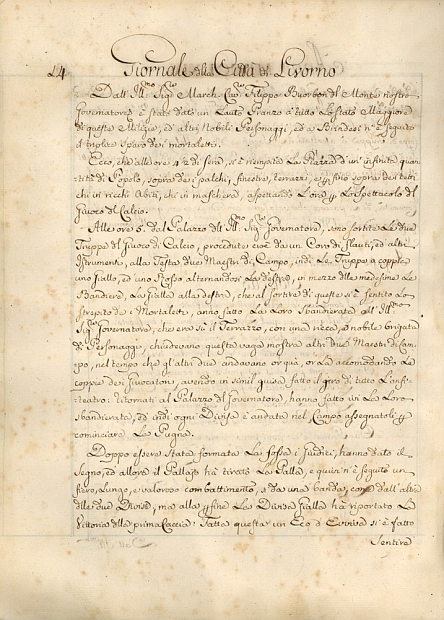 14 Giornale della Città di Livorno
Dall' Ill.mo Sig.r March. Cav. Filippo Bourbon del Monte nostro
Governatore è stato dato un Lauto Pranzo a tutto Lo Stato Maggiore
di queste Milizie, ed altri Nobili Personaggi, ed a Brindesi n'è seguito
il triplice sparo dei mortaletti.
Ecco, che alle ore 4 1/2 di sera, si è riempito La Piazza d'un' infinita quan-
tità di Popolo, sopra dei palchi, finestre, terrazzi, e fino sopra dei tetti
chi in ricchi Abiti, chi in maschera, aspettando L'ora p. Lo Spettacolo del
Giuoco del Calcio.
Alle ore 5. dal Palazzo dell' Ill.mo Sig.r Governatore, sono sortite Le due
Truppe del Giuoco di Calcio, precedute cioè da un Coro di flauti, ed altri
Istrumenti, alla Testa due Maestri di Campo, indi Le Truppe a coppie
uno giallo, ed uno Rosso alternandosi La destra, in mezzo alle medesime Le
Bandiere, La gialla alla destra, che al sortire di queste si è sentito Lo
strepito de' Mortaletti, anno fatto La Loro Sbandierata all' Ill.mo
Sig.r Governatore, che era sù il Terrazzo, con una ricca, e nobile brigata
di Personaggi, chiudevano questa vaga mostra altri due Maestri di Cam-
po, nel tempo che gl'altri due andavano or quà, or La accomodando Le
coppie dei Giuocatori, avendo in simil guisa fatto il giro di tutto L'anfi-
teatro: Ritornati al Palazzo del Governatore, hanno fatto ivi La Loro
sbandierata, ed indi ogni Divisa è andata nel Campo assegnatoli p.
cominciare La Pugna.
Doppo essere stata formata La fossa i Giudici, hanno dato il
Segno, ed allora il Pallaio ha tirato La Palla, e quivi n'è seguito un
fiero, Lungo, e valoroso combattimento, sì da una banda, come dall' altra
delle due Divise, ma alla p. fine La Divisa gialla ha riportato La
Vittoria della prima Caccia: Fatta questa un Eco d'Evviva si è fatto
Sentire